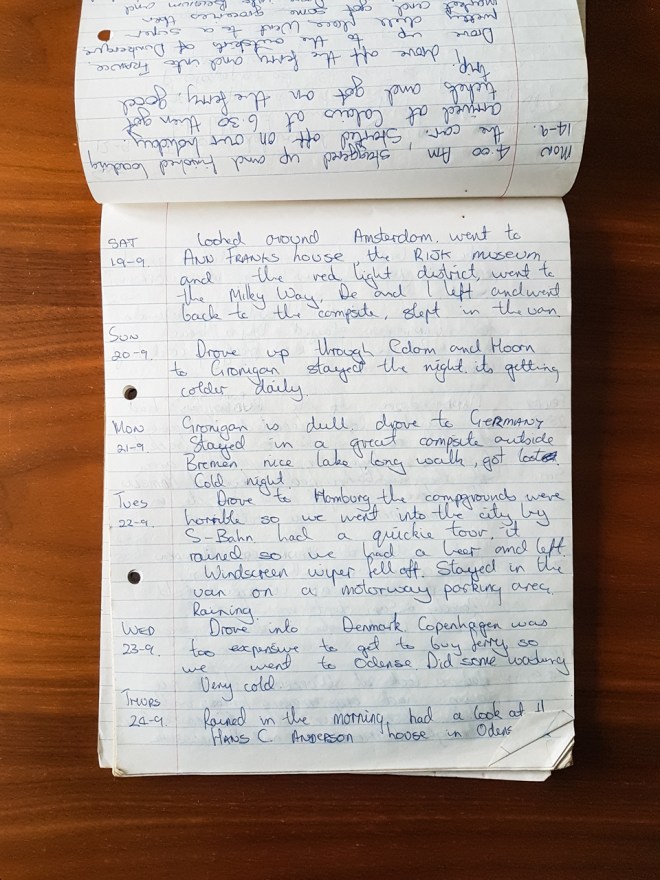 MON 4.00 Am staggered up and finished loading
14-9. the car. Started off on our holiday.
arrived at Calais at 6.30 then got
tickets and got on the ferry. good
trip.
I drove off the ferry and into France.
Drove up to the outskirts of
pretty dull place. Went to a super
market and got some groceries then
into Belgium and
SAT looked around Amsterdam. went to
19-9. ANN FRANKS house, the RIJK museum
and the red light district, went to
the Milky Way. De and I left and went
back to the campsite, slept in the van
SUN
20-9. Drove up through Edam and Hoorn
to Gronigan stayed the night. its getting
colder daily.
MON Gronigan is dull, drove to GERMANY
21-9. Stayed in a great campsite outside
Bremen. nice lake, long walk, got lost
Cold night.
TUES Drove to Hamburg the campgrounds were
22-9. horrible so we went into the city by
S-Bahn. had a quickie tour. it
rained so we had a beer and left.
Windscreen wiper fell off. Stayed in the
van on a motorway parking area.
Raining.
WED Drove into Denmark. Copenhagen was
23-9. too expensive to get to buy ferry so
we went to Odense. Did some washing
Very cold
THURS
24-9. Rained in the morning, had a look at
HANS C. ANDERSON house in Odens